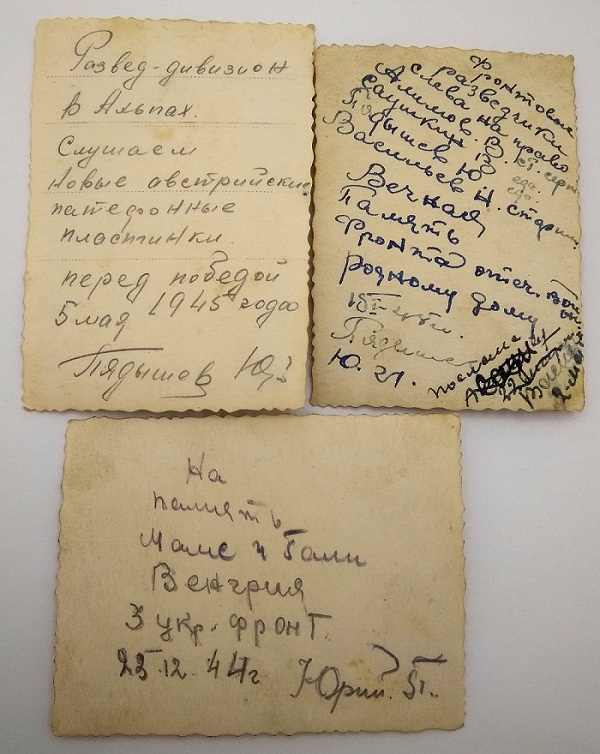 Развед-дивизион
в Альпах.
Слушаем
новые австрийские
патефонные
пластинки.
перед победой
5 мая 1945 года
Пядышев Ю.
Фронтовые
разведчики
слева на право
Алимов В.
Пядышев Ю
Васильев Н. старш.
Вечная
Память
фронта отеч. войн
родному дому
Ю. гл.
послано
На
память
Маме и Гали
Венгрия
3 укр. фронт.
25.12.44г
Юрий.